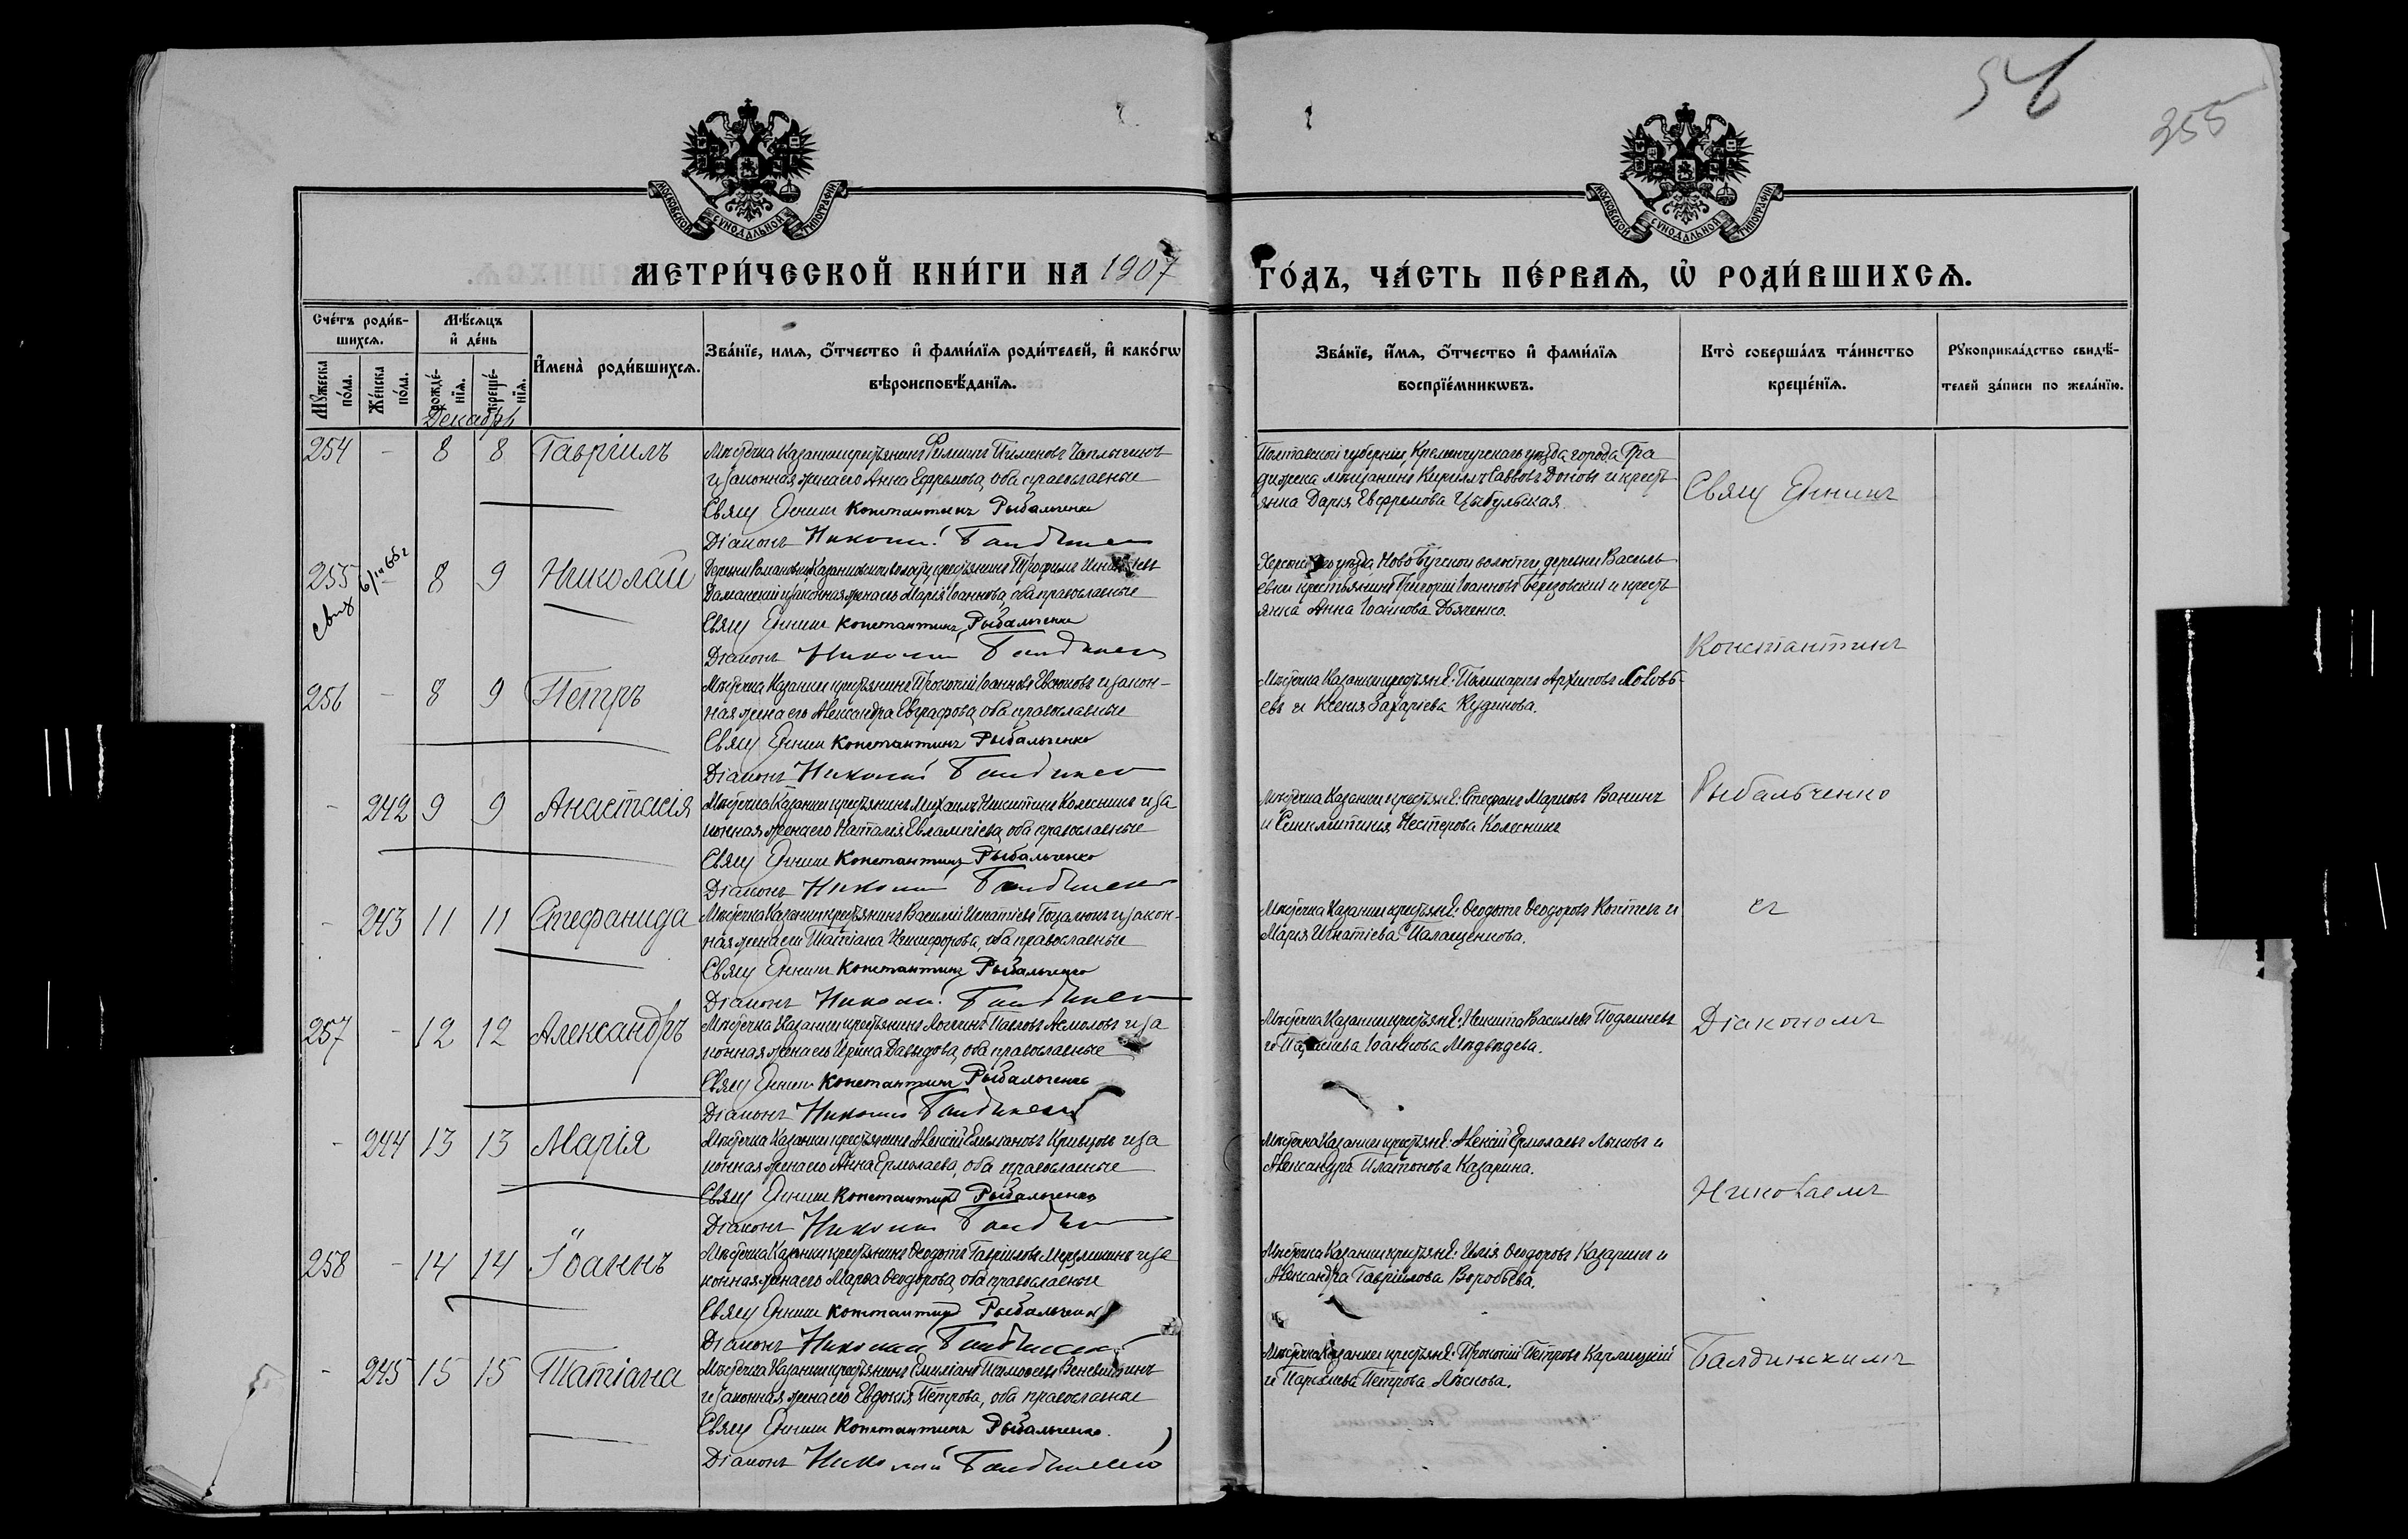 56
255
МОСКОВСКОЙ СУНОДАЛЬНОЙ ТИПОГРАФІИ
МОСКОВСКОЙ СУНОДАЛЬНОЙ ТИПОГРАФІИ
МЕТРИ́ЧЕСКОЙ КНИ́ГИ НА 1907
ГО́ДЪ, ЧА́СТЬ ПЕ́РВАѦ, Ѡ҆ РОДИ́ВШИХСѦ.
Сче́тъ роди́в-
шихсѧ.
Мѣ́сѧцъ
и҆ де́нь
И҆мена̀ роди́вшихсѧ.
Зва́нїе, имѧ, ѻ҆́тчество и҆ фами́лїѧ роди́телей, и҆ како́гѡ
вѣроисповѣ́данїѧ.
Мꙋ́жеска по́ла.
Же́нска по́ла.
рожде́нїѧ.
креще́нїѧ.
Зва́нїе, и҆́мѧ, ѻ҆́тчество и҆ фами́лїѧ
воспрїе́мникѡвъ.
Кто̀ соверша́лъ та́инство
креще́нїѧ.
Рꙋкоприкла́дство свидѣ́-
телей за́писи по жела́нїю.
Декабрь
254 - 8 8 Гавріилъ
Мѣстечка Казанки крестьянинъ Филиппъ Пименовъ Чаплыгинъ
и законная жена его Анна Ефремова, оба православные
Свящ Константинъ Рыбальченко
Діаконъ Николай Балдинскій
Полтавской губерніи Кременчугскаго уѣзда города Гра
дижска мѣщанинъ Кириллъ Саввовъ Доновъ и кресть
янка Дарія Евфремова Цыбульская.
255 8 9 Николай
свид
Деревни Романовки Казанковской волости, крестьянинъ Трофимъ
Даманскій и законная жена его Марія Іоаннова, оба православные
Свящ Константинъ Рыбальченко
Діаконъ Николай Балдинскій
Херсонскаго уѣзда, Ново Бугской волости деревни Василь
евки крестьянинъ Григорій Іоанновъ Березовскій и кресть
янка Анна Іоаннова Дяченко.
256 - 8 9 Петръ
Мѣстечка Казанки крестьянинъ Прокопій Іоанновъ Евсюковъ и закон-
ная жена его Александра Евграфова, оба православные
Свящ Константинъ Рыбальченко
Діаконъ Николай Балдинскій
Мѣстечка Казанки крестьяне: Поликарпъ Архиповъ Соловь
евъ и Ксенія Захаріева Кудинова.
- 242 9 9 Анастасія
Мѣстечка Казанки крестьянинъ Михаилъ Никитинъ Колесникъ и за
конная жена его Наталія Евлампіева, оба православные
Свящ Константинъ Рыбальченко
Діаконъ Николай Балдинскій
Мѣстечка Казанки крестьяне: Стефанъ Марковъ Ванинъ
и Нестерова Колесникъ
- 243 11 11 Стефанида
Мѣстечка Казанки крестьянинъ Василій Игнатіевъ и закон-
ная жена его Татіана Никифорова, оба православные
Свящ Константинъ Рыбальченко
Діаконъ Николай Балдинскій
Мѣстечка Казанки крестьяне: Ѳеодотъ Ѳеодоровъ Коптевъ и
Марія Игнатіева Палащенкова.
257 - 12 12 Александръ
Мѣстечка Казанки крестьянинъ Логгинъ Павловъ Асмоловъ и за
конная жена его Ирина Давыдова, оба православные
Свящ Константинъ Рыбальченко
Діаконъ Николай Балдинскій
Мѣстечка Казанки крестьяне: Никита Васильевъ
и Іоаннова Медвѣдева.
- 244 13 13 Марія
Мѣстечка Казанки крестьянинъ Алексій Емиліановъ Кривцовъ и за
конная жена его Анна Ермолаева, оба православные
Свящ Константинъ Рыбальченко
Діаконъ Николай
Мѣстечка Казанки крестьяне: Алексій Ермолаевъ Лыковъ и
Александра Платонова Казарина.
258 - 14 14 Іоаннъ
Мѣстечка Казанки крестьянинъ Ѳеодотъ Гавріиловъ и за
конная жена его Марѳа Ѳеодорова, оба православные
Свящ Константинъ Рыбальченко
Діаконъ Николай Балдинскій
Мѣстечка Казанки крестьяне: Илія Ѳеодоровъ Казаринъ и
Александра Гавріилова Воробьева.
- 245 15 15 Татіана
Мѣстечка Казанки крестьянинъ Емиліанъ Тимоѳеевъ
и законная жена его Евдокія Петрова, оба православные
Свящ Константинъ Рыбальченко.
Діаконъ Николай Балдинскій
Мѣстечка Казанки крестьяне: Прокопій Петровъ Карлицкій
и Петрова Лѣскова.
Свящ
Константинъ
Рыбальченко
съ
Діакономъ
Николаемъ
Балдинскимъ